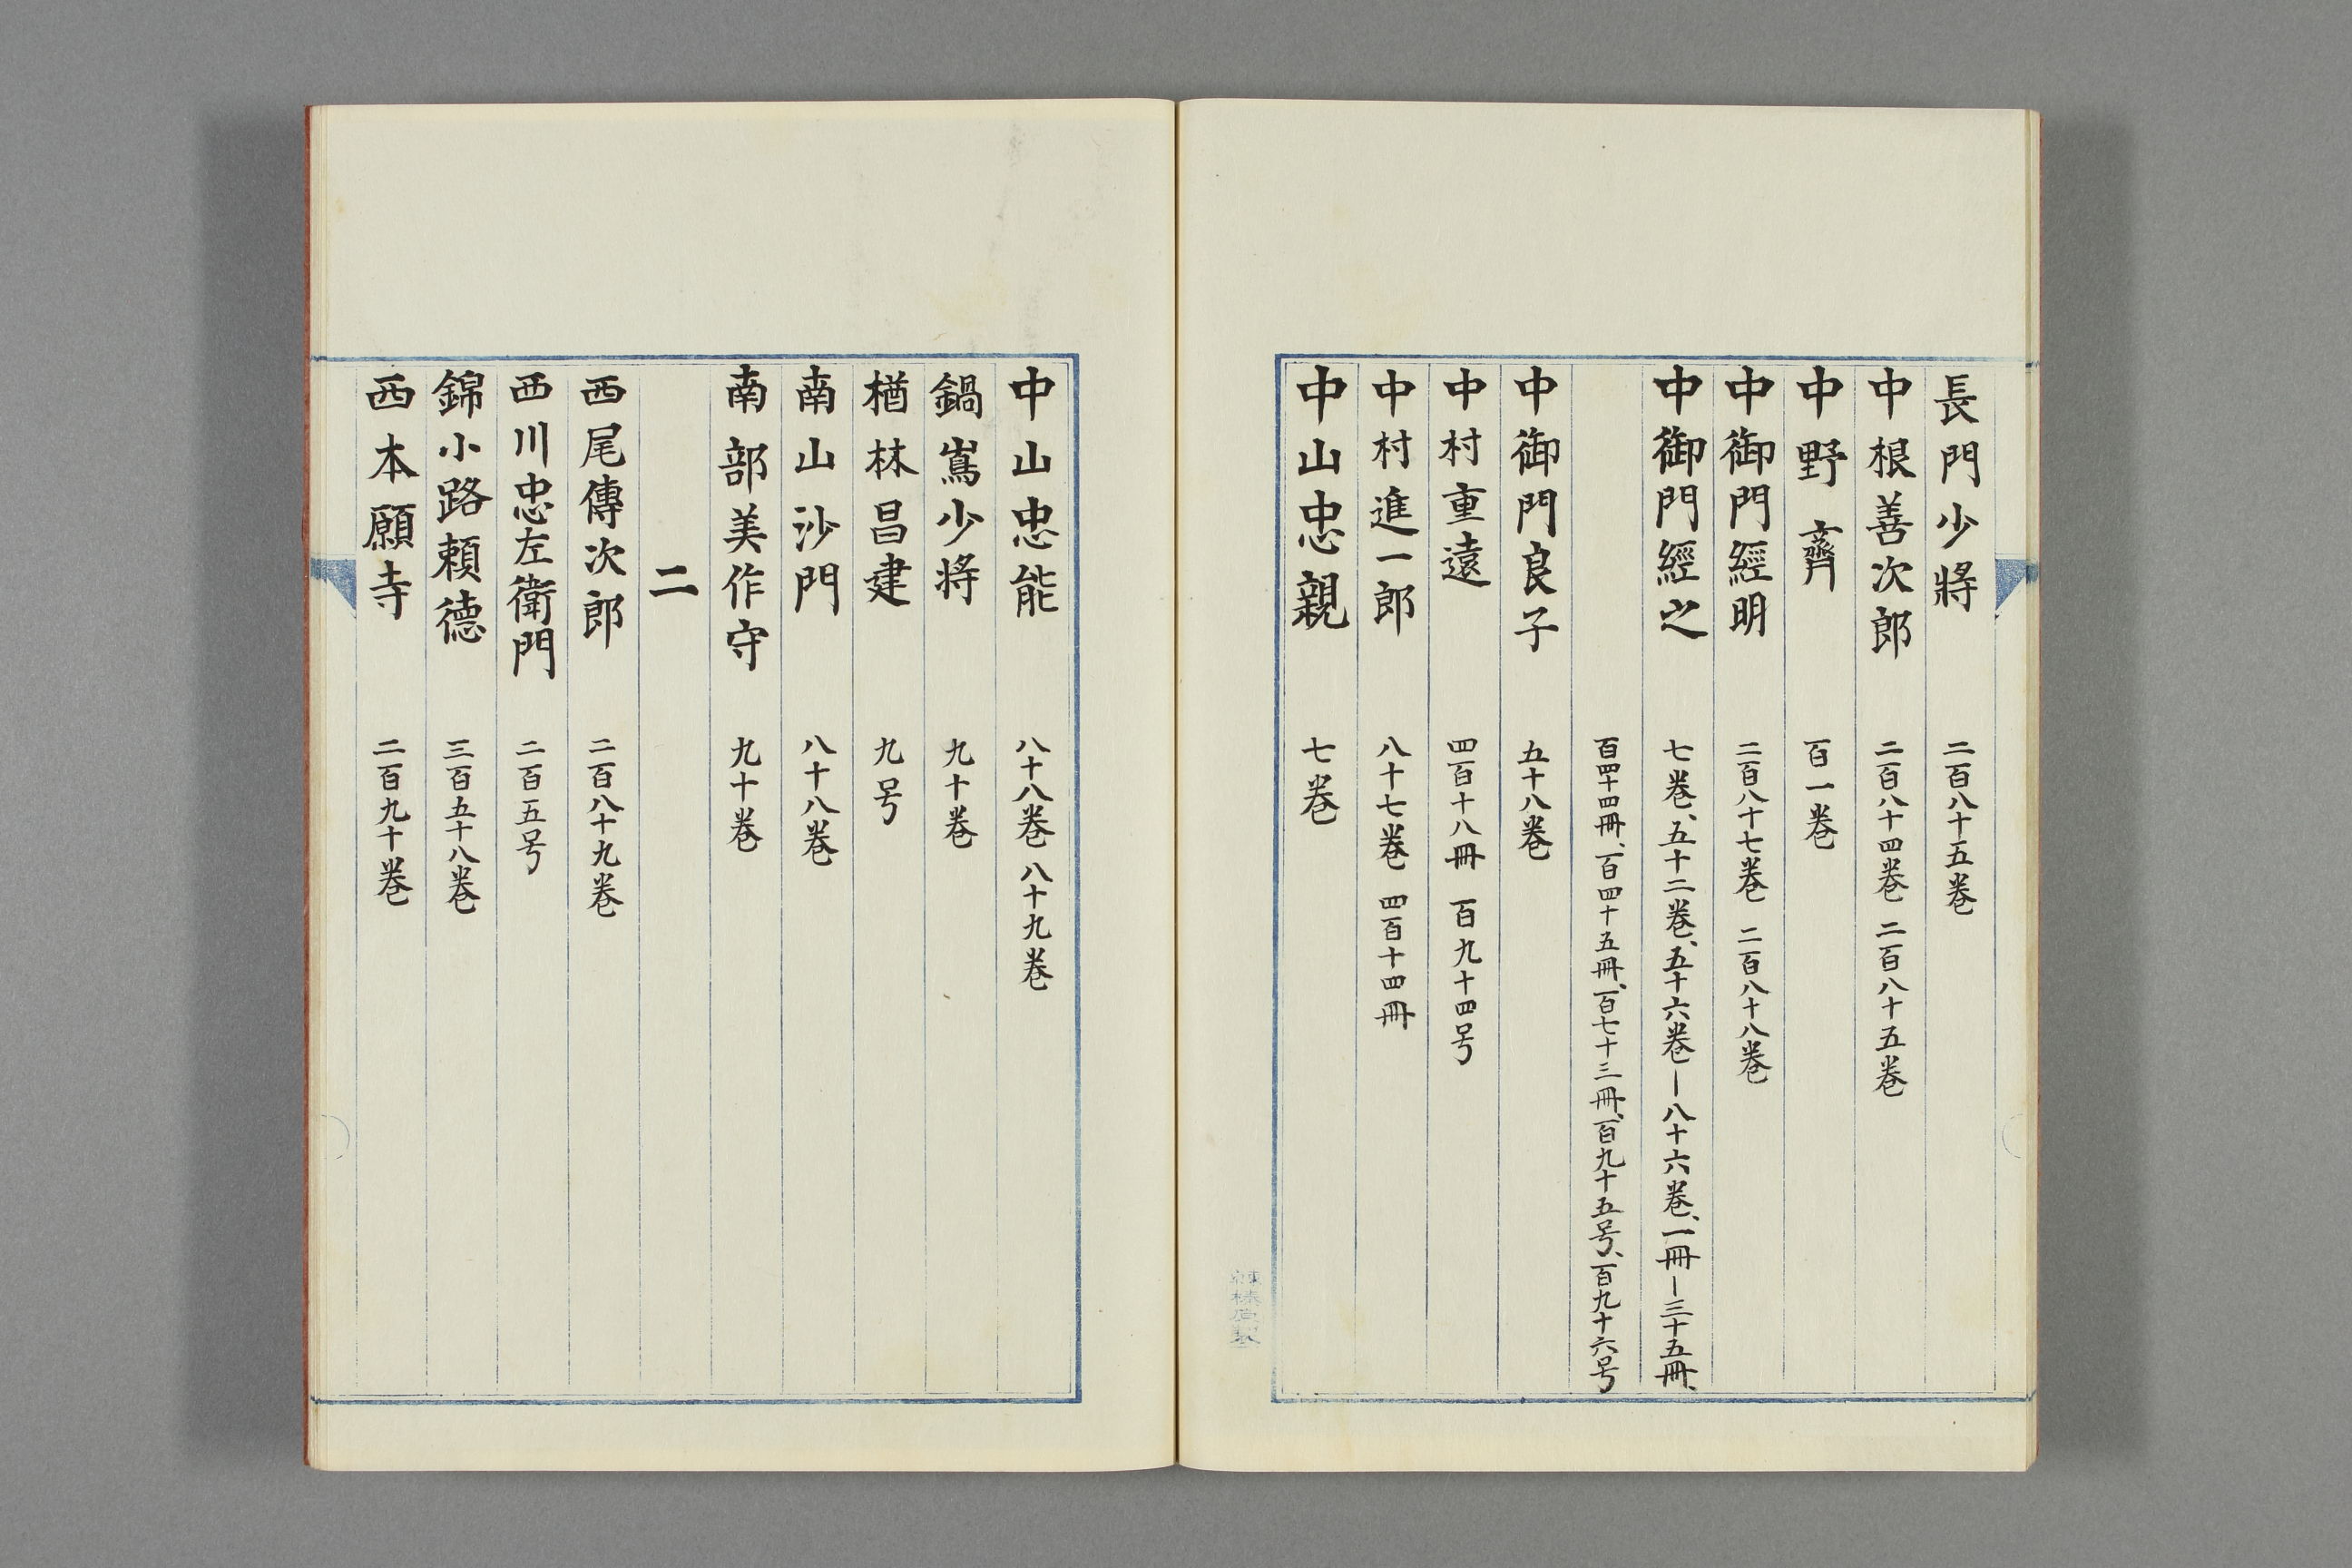 長門少將 二百八十五巻
中根善次郎 二百八十四巻 二百八十五巻
中野齊 百一巻
中御門經明 二百八十七巻 二百八十八巻
中御門經之 七巻、五十二巻、五十六巻ー八十六巻、一冊ー三十五冊、
百四十四冊、百四十五冊、百七十三冊、百九十五号、百九十六号
中御門良子 五十八巻
中村重遠 四百十八冊 百九十四号
中村進一郎 八十七巻 四百十四冊
中山忠親 七巻
中山忠能 八十八巻 八十九巻
鍋嶌少将 九十巻
楢林昌建 九号
南山沙門 八十八巻
南部美作守 九十巻
二
西尾傳次郎 二百八十九巻
西川忠左衛門 二百五号
錦小路頼德 三百五十八巻
西本願寺 二百九十巻